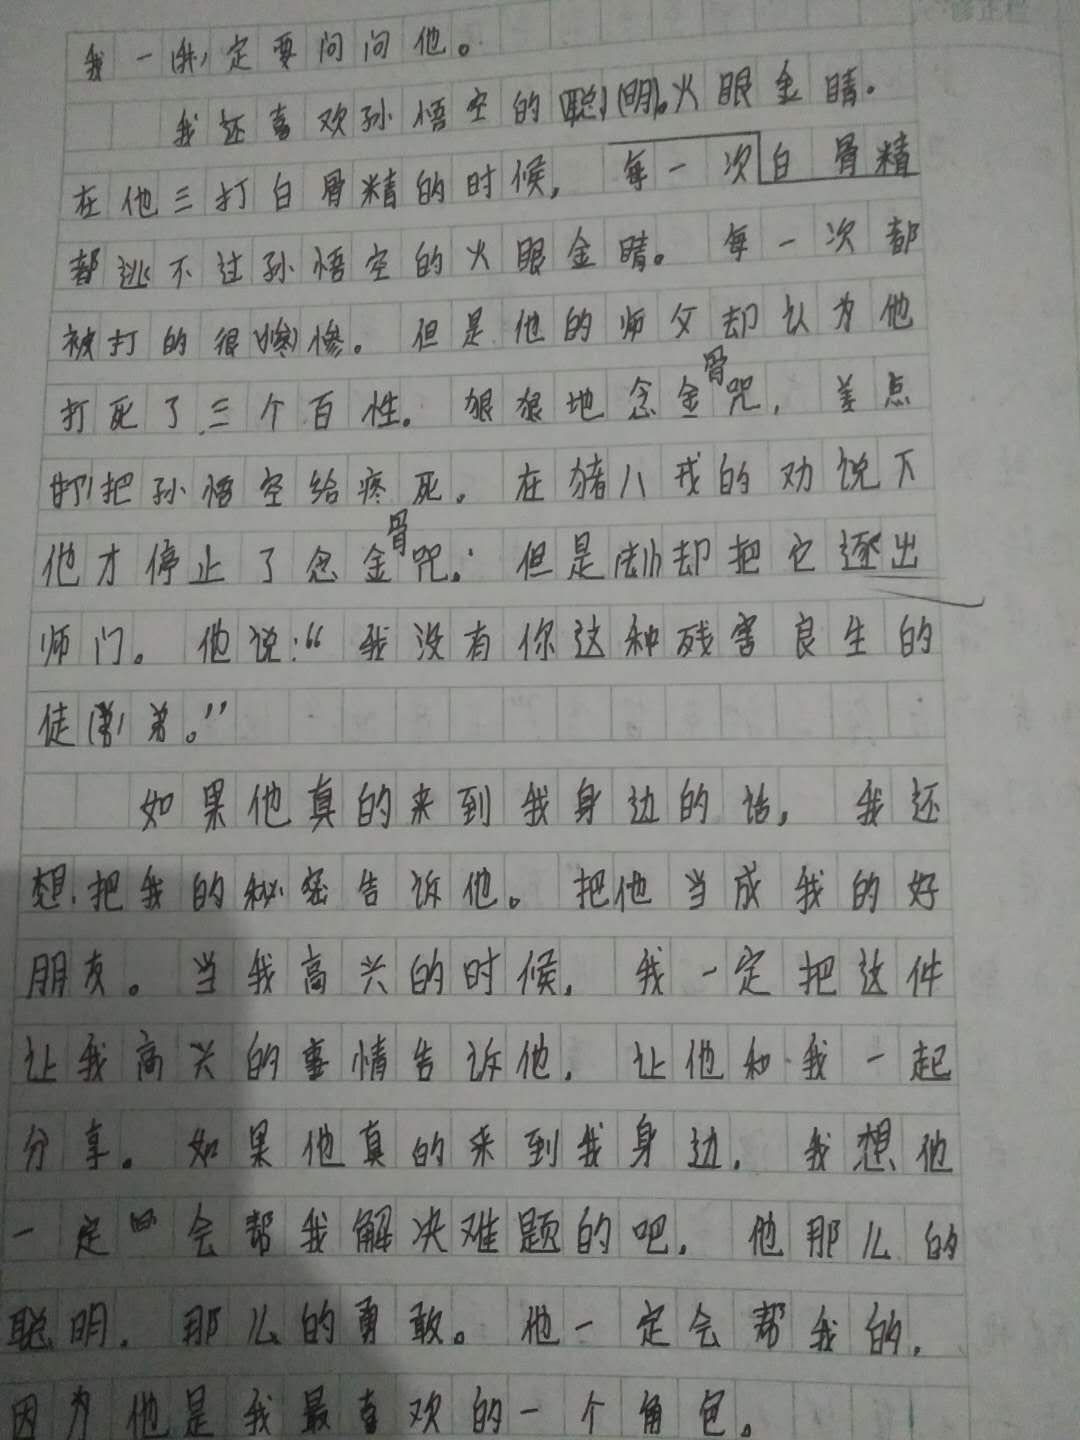 我一定要问问他。
我还喜欢孙悟空的聪明。火眼金睛。
在他三打白骨精的时候，每一次白骨精
都逃不过孙悟空的火眼金睛。每一次都
被打的很惨。但是他的师父却认为他
打死了三个百性。狠狠地念金骨咒，差点
把孙悟空给疼死。在猪八戒的劝说下
他才停止了念金骨咒。但是却把它逐出
师门。他说：“我没有你这种残害良生的
徒弟。”
如果他真的来到我身边的话，我还
想把我的秘密告诉他。把他当成我的好
朋友。当我高兴的时候，我一定把这件
让我高兴的事情告诉他，让他和我一起
分享。如果他真的来到我身边，我想他
一定会帮我解决难题的吧，他那么的
聪明，那么的勇敢。他一定会帮我的，
因为他是我最喜欢的一个角色。